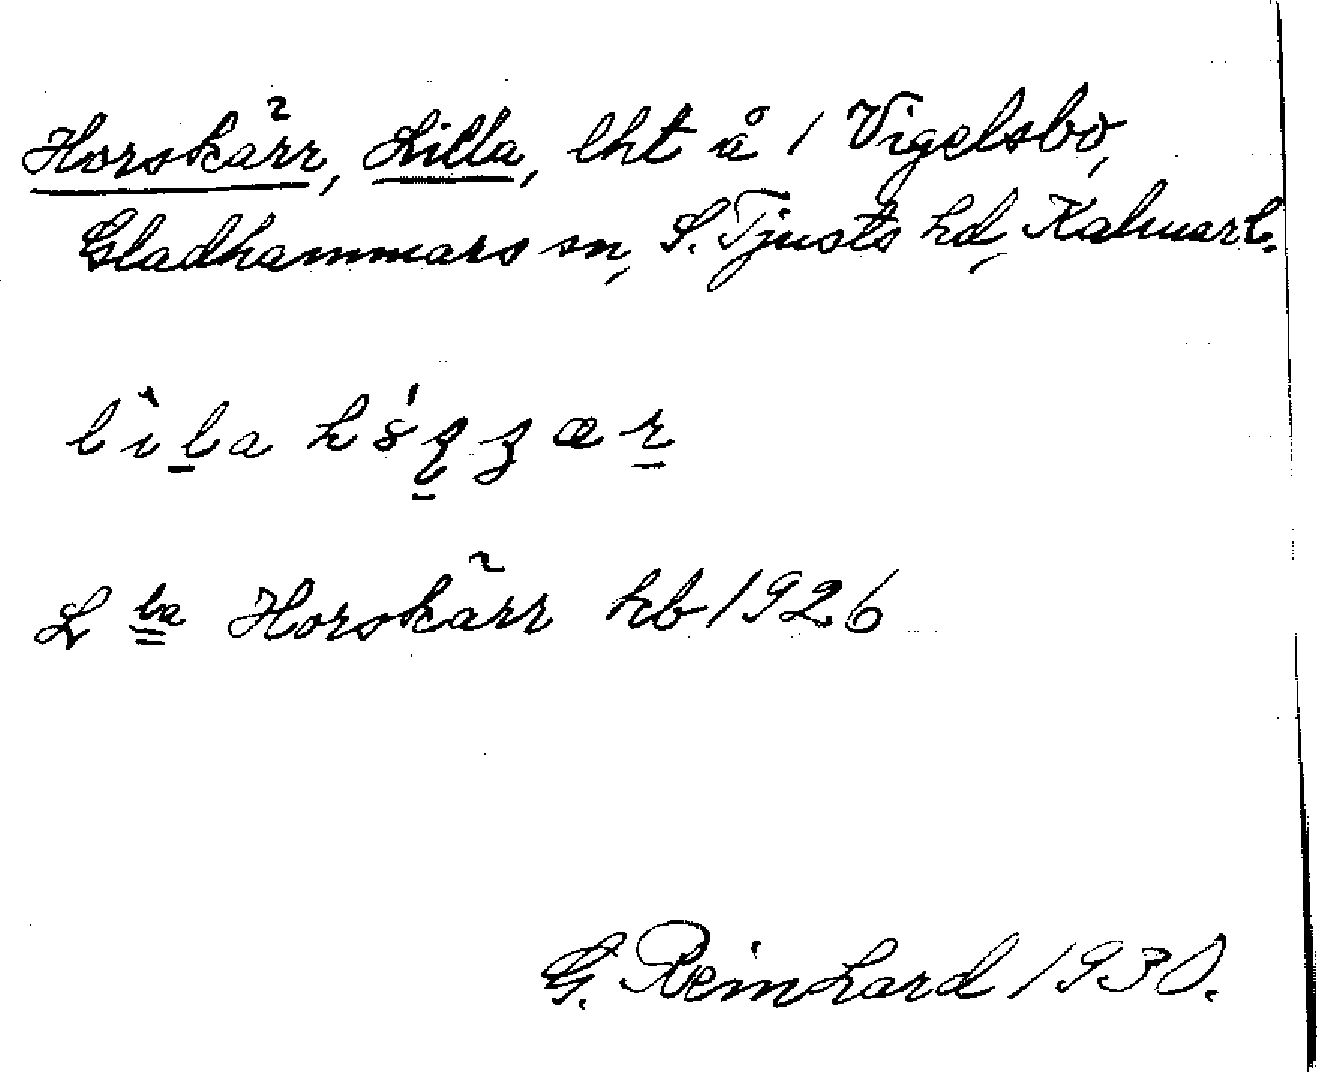 Horskärr, Lilla, lht å 1 Vigelsbo,
Gladhammars sn, S. Tjusts hd, Kalmar l.
L la Horskärr hb 1926
G. Reinhard 1930.